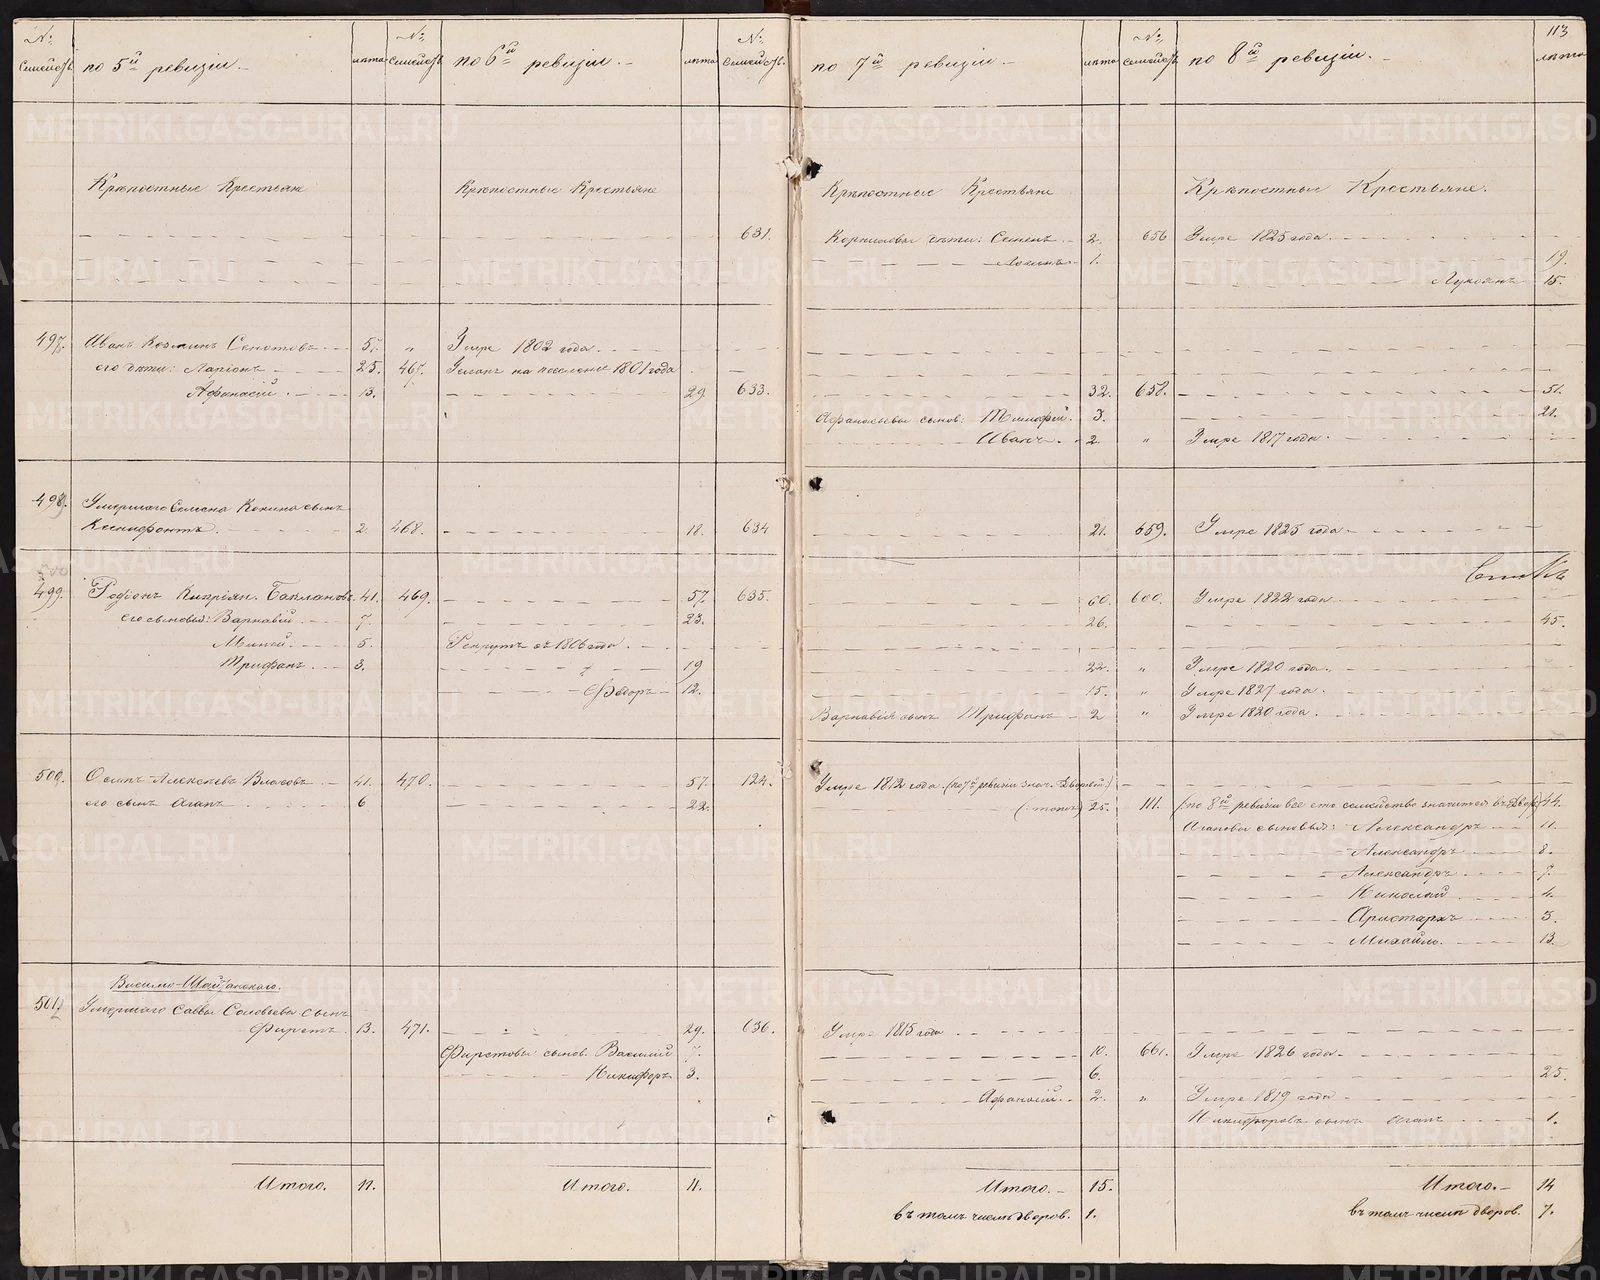 113
№ Семейств.
по 5й ревизiи.
лѣта
№ Семейств.
по 6й ревизiи.
лѣта
№ Семейств.
по 7й ревизiи.
лѣта
№ семейств.
по 8й ревизiи.
лѣта
Крѣпостные Крестьяне
Крѣпостные Крестьяне
Крѣпостные Крестьяне
Крѣпостные Крестьяне.
631. Корниловы дѣти: Семенъ 2. 656 Умре 1825 года.
1. 19.
Лукоянъ 15.
497. Иванъ Козминъ 57. „ Умре 1802 года.
его дѣти: Ларiонъ 25. 467. на поселенiе 1801 года
Афанасiй 13. 29 633. 32. 658. 51.
Афанасьевы сынов: Тимофей. 3. 21.
Иванъ. 2. „ Умре 1817 года.
498. Умершаго Семена сынъ
Ксенофонтъ. 2. 468. 18. 634 21. 659. Умре 1825 года
499. Родiонъ Кипрiян. Баклановъ. 41. 469. 57. 635. 60. 660. Умре 1822 года
его сыновья: Варнавiй 7. 23. 26. 45.
Миней. 5. Рекрутъ съ 1806 года
Трифанъ 3. 19 22. „ Умре 1820 года.
Ѳедоръ 12. 15. „ Умре 1827 года.
Варнавiя сынъ Трифанъ 2 „ Умре 1820 года.
500. Осипъ Алексѣевъ Власовъ 41. 470. 57. 124. Умре 1812 года (по 7й ревизiи знач. Дворовой.)
его сынъ Агапъ 6 22. 25. 111. (по 8й ревизiи все его семейство значится въ Двор.) 44.
Агаповы сыновья: Александръ 11.
Александръ 8.
Александръ 7.
Николай 4.
Аристархъ 3.
Михайло. 13.
Висимо-Шайтанскаго.
501. Умершаго Саввы Соловьева сынъ
Фирстъ. 13. 471. 29. 636. Умре 1815 года
Фирстовы сынов. Василiй 7. 10. 661. Умре 1826 года
Никифоръ 3. 6. 25.
Афанасiй. 2. „ Умре 1819 года
Никифоровъ сынъ Агапъ 1.
Итого. 11. Итого. 11. Итого. 15. Итого. 14
въ томъ числѣ дворов. 1. въ томъ числѣ дворов. 7.
METRIKI.GASO-URAL.RU